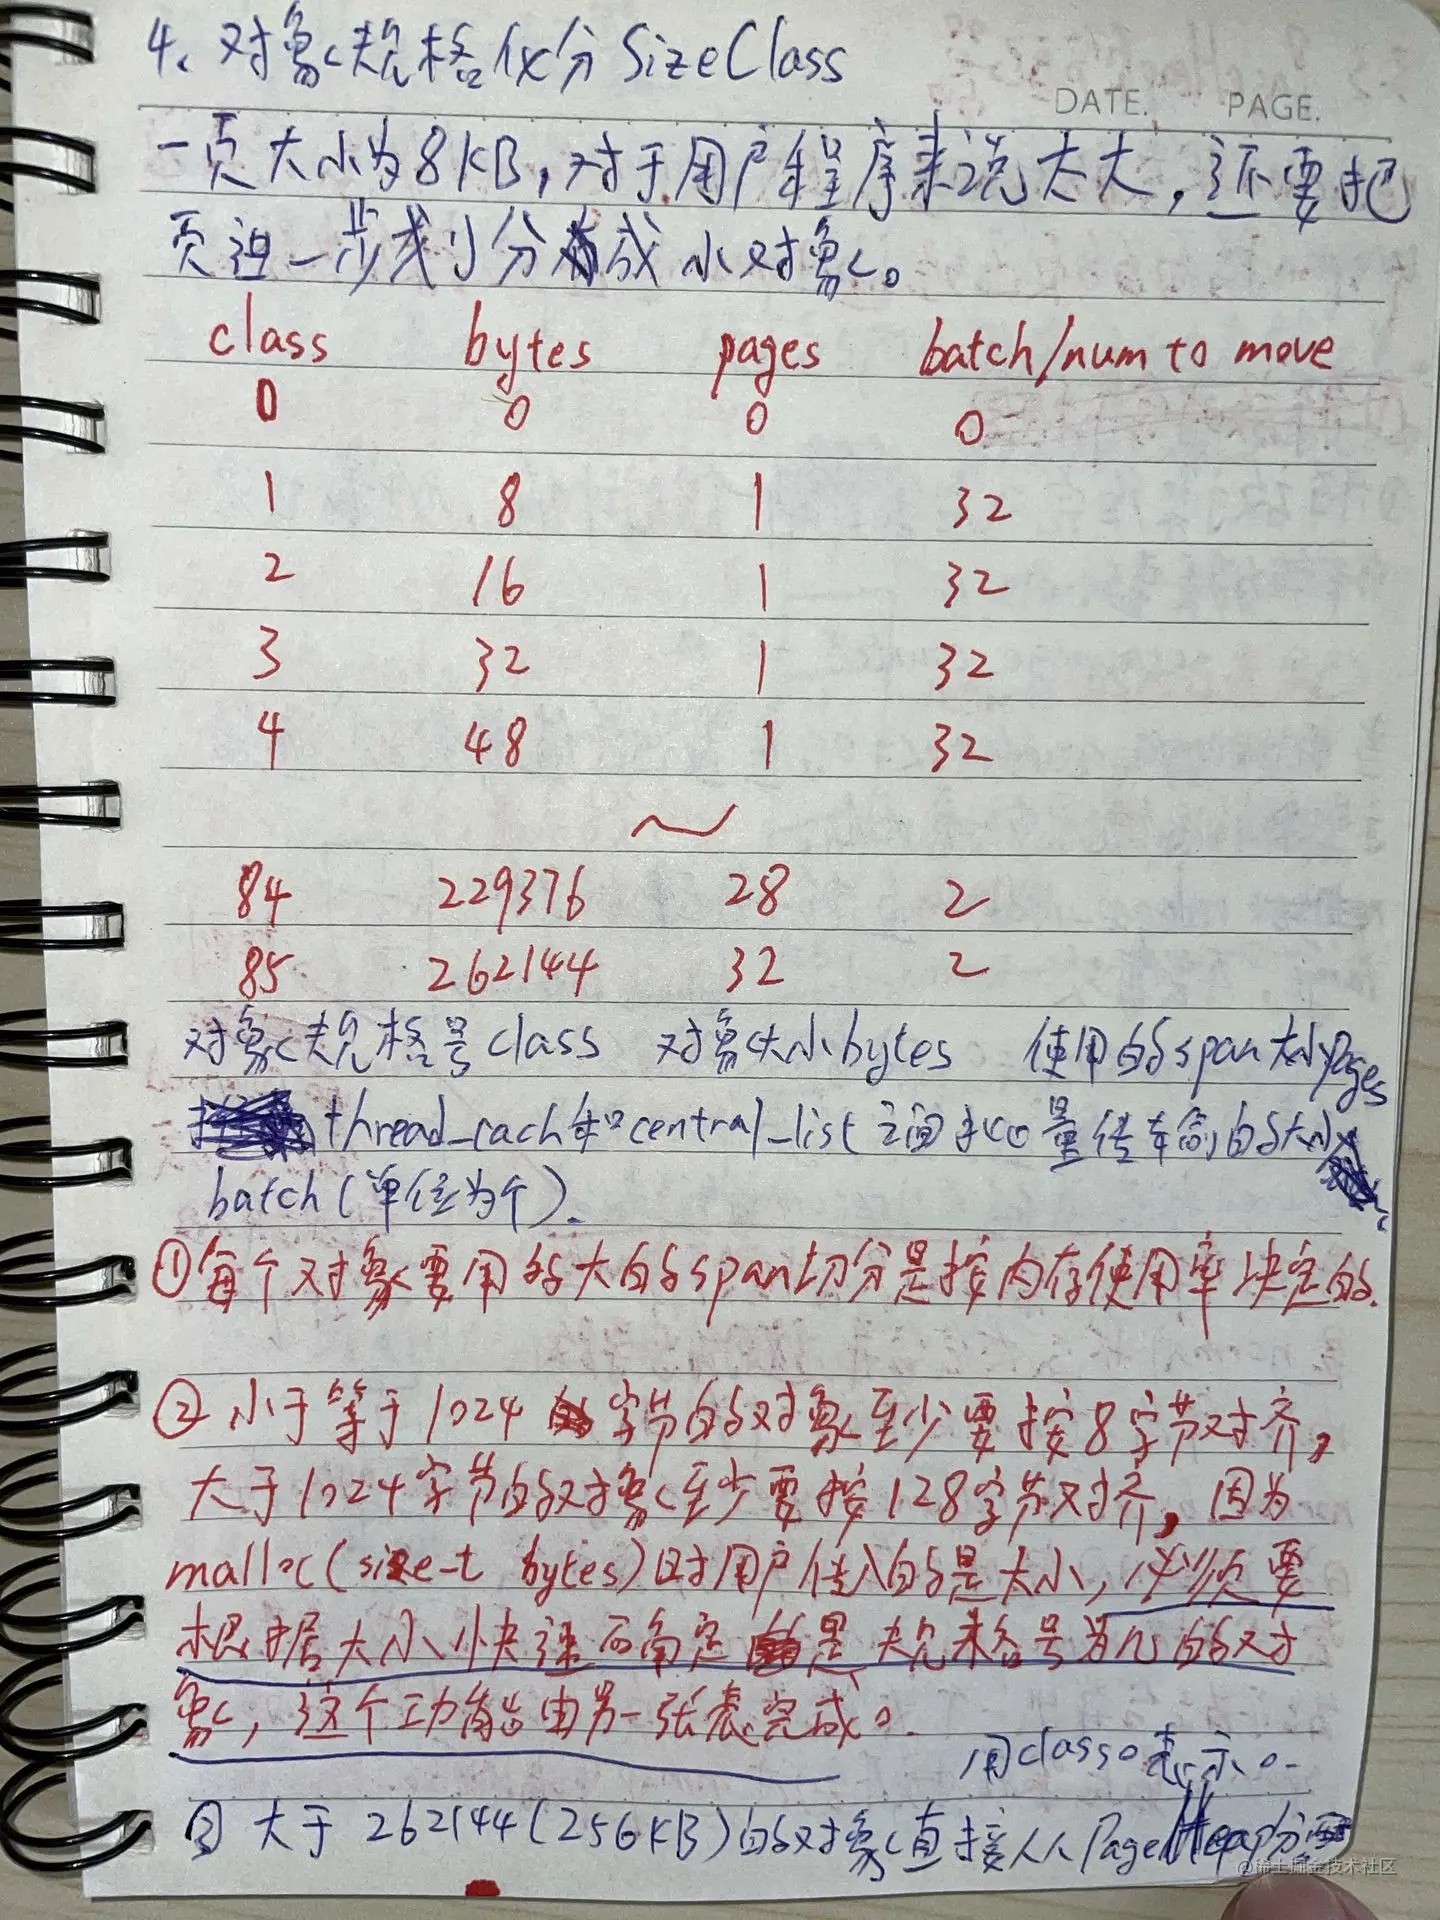 4、对象规格化分SizeClass
DATE. PAGE.
一页大小为8KB,对于用户程序来说太大,还要把
页进一步划分成小对象。
class bytes pages batch/num to move
0 0 0 0
1 8 1 32
2 16 1 32
3 32 1 32
4 48 1 32
~
84 229376 28 2
85 262144 32 2
对象规格号class 对象大小bytes 使用的span大小pages
thread_cach和central_list之间批量传输的大小
batch(单位为个).
①每个对象要用多大的span切分是按内存使用率决定的.
②小于等于1024字节的对象至少要按8字节对齐,
大于1024字节的对象至少要按128字节对齐,因为
malloc(size_t bytes)时用户传入的是大小,必须要
根据大小快速确定是规格号为几的对
象,这个功能由另一张表完成。
用class0表示。
③大于262144(256KB)的对象直接从PageHeap分配
@稀土掘金技术社区